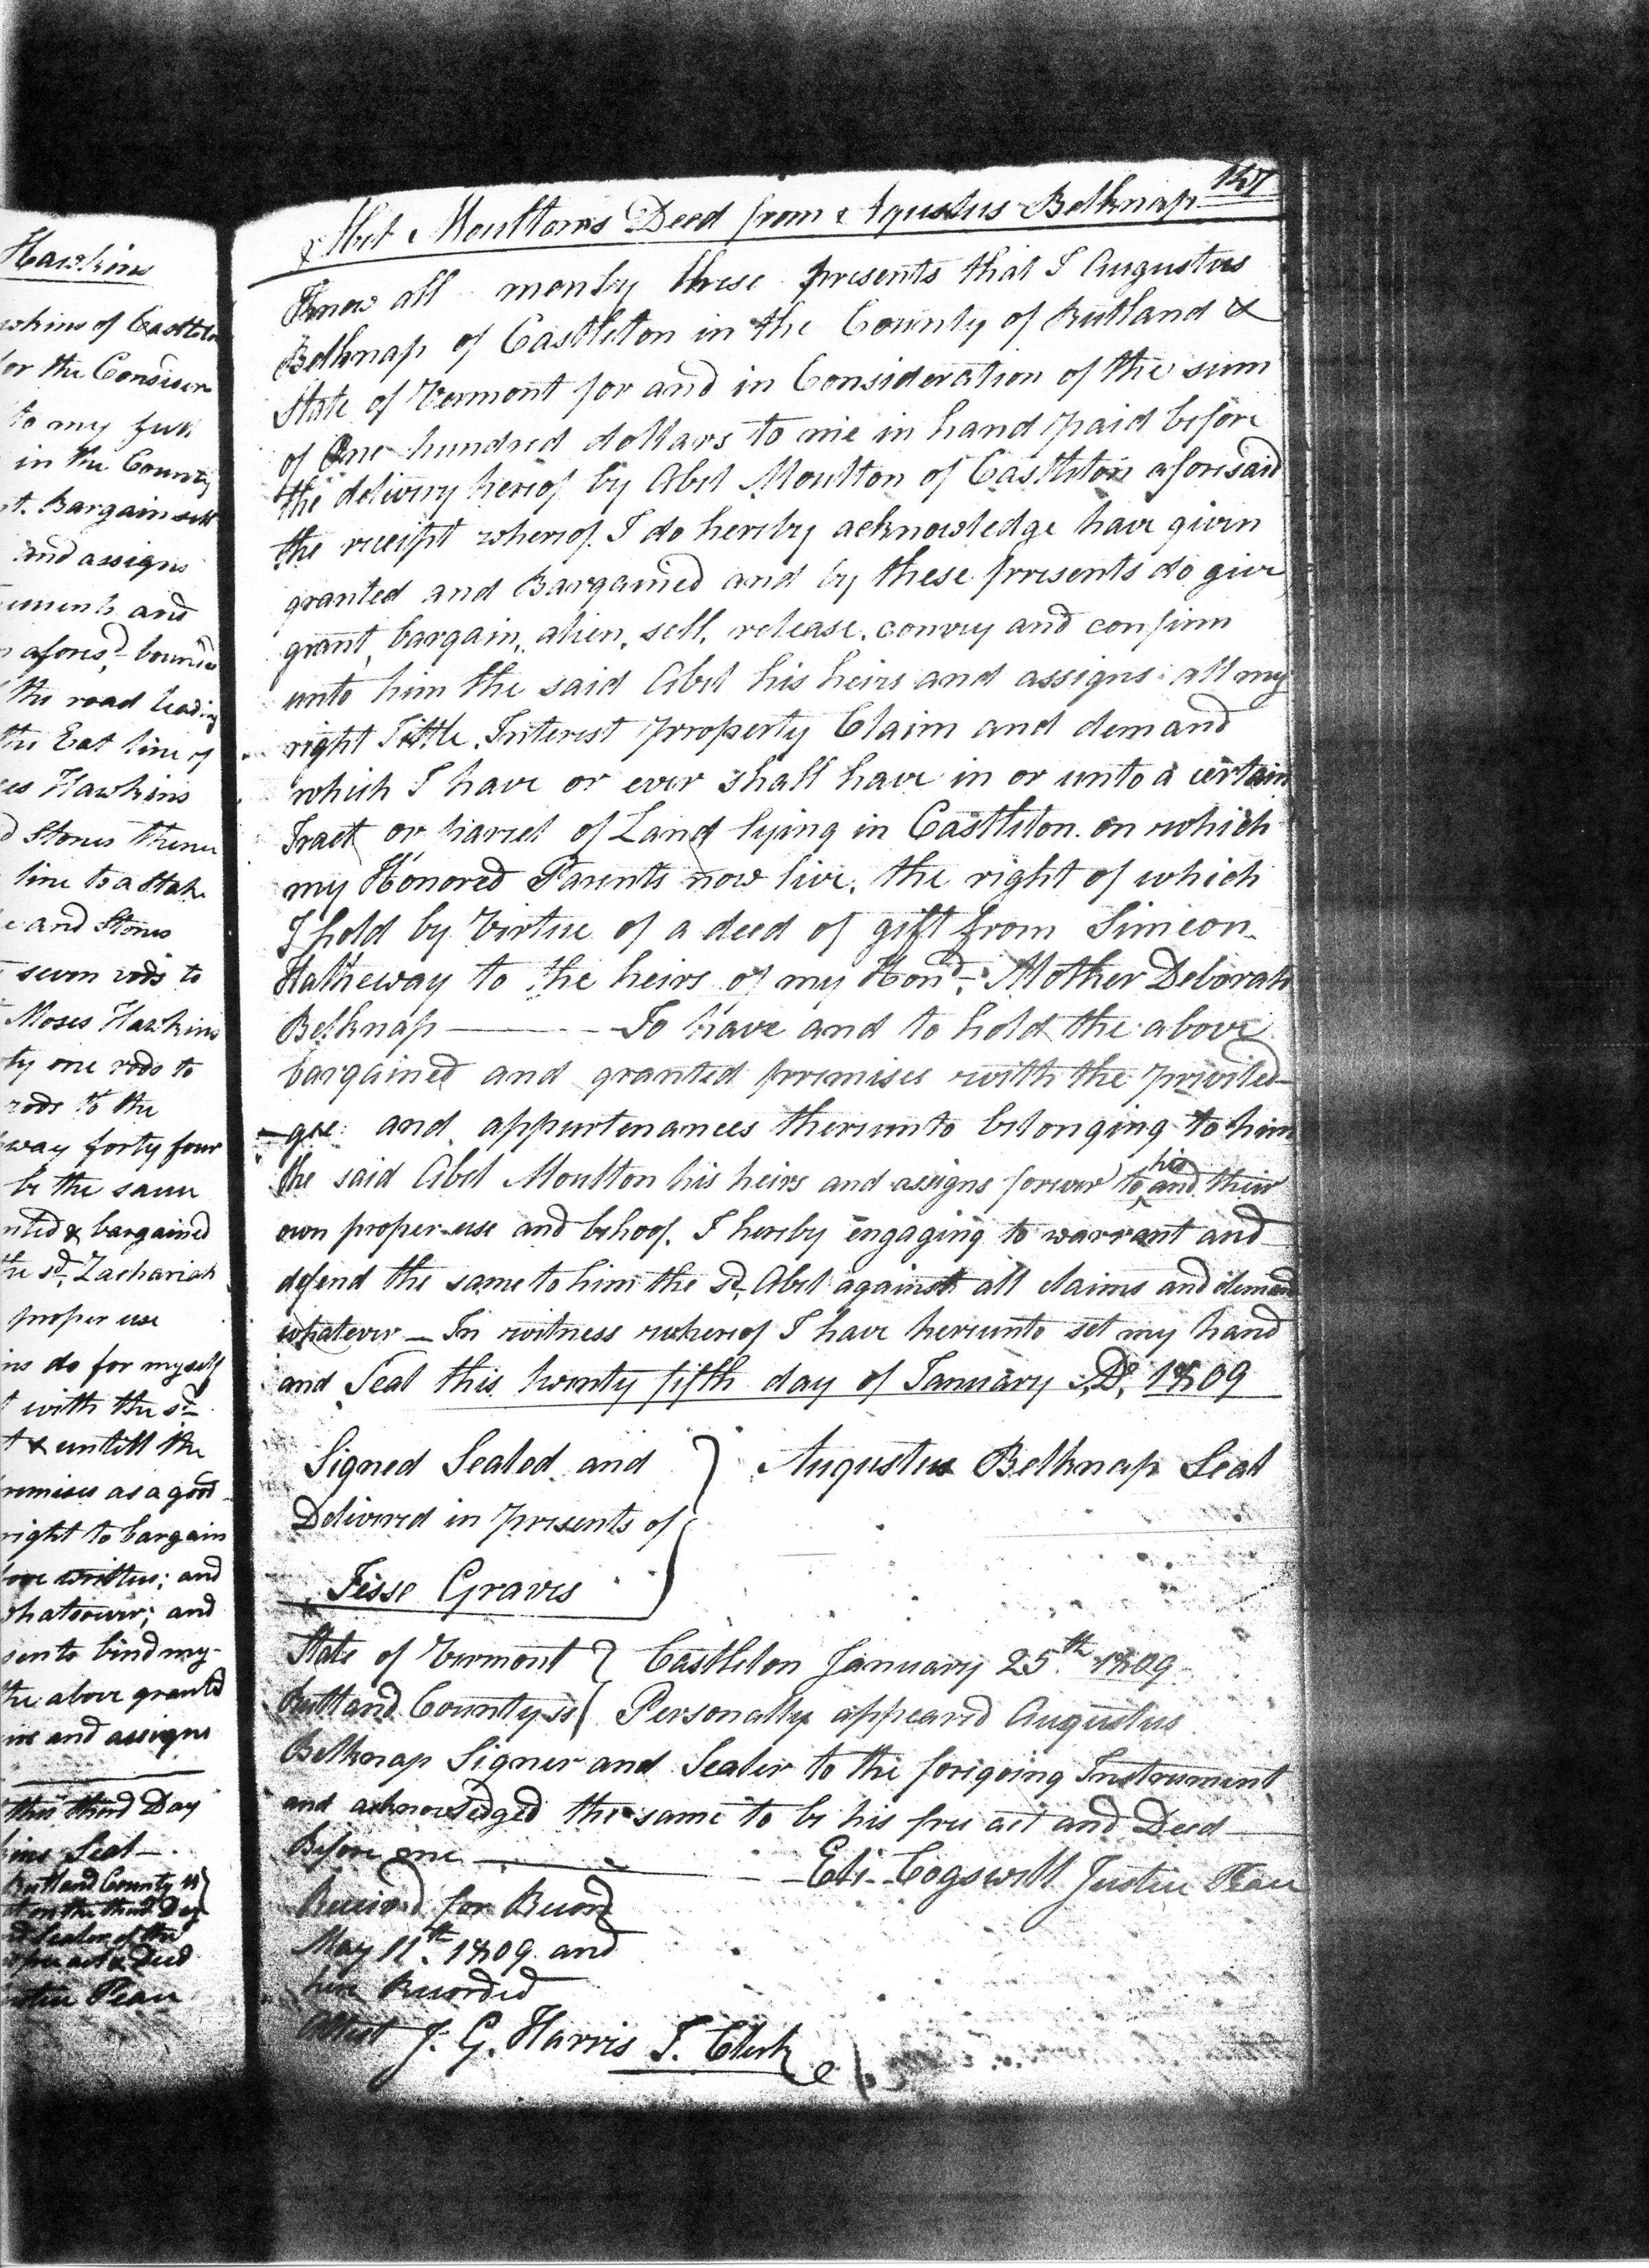 Hawkins
wkins of Castleton
for the Consider
to my full
in the County
t. Bargain sell
and assigns
ements and
afores.d bound
the road leading
the Eat line of
es Hawkins
d Stones thence
line to a Stake
e and Stones
seven rods to
Moses Hawkins
ty one rods to
rods to the
way forty four
be the same
nted & bargained
the sd. Zachariah
proper use
ns do for myself
t with the sd
t & untill the
remises as a good
right to bargain
ove written; and
whatsoever; and
sents bind my-
the above granted
irs and assigns
this third Day
kins Seal
Rutland County ss
on the third Day
d Sealer of the
free act & Deed
Justice Peace
Abel Moultons Deed from Agustus Belknap 147
Know all men by these presents that I Augustus
Belknap of Castleton in the County of Rutland &
State of Vermont for and in Consideration of the sum
of One hundred dollars to me in hand paid before
the delivery hereof by Abel Moulton of Castleton aforesaid
the receipt whereof I do hereby acknowledge have given
granted and Bargained and by these presents do give
grant, bargain, alien, sell, release, convey and confirm
unto him the said Abel his heirs and assigns all my
right Tittle Interest Property Claim and demand
which I have or ever shall have in or unto a certain
Tract or parcel of Land lying in Castleton on which
my Honored Parents now live, the right of which
I hold by Virtue of a deed of gift from Simeon
Hatheway to the heirs of my Hond. Mother Deborah
Belknap — To have and to hold the above
bargained and granted premises with the priviled-
-ges and appurtenances thereunto belonging to him
the said Abel Moulton his heirs and assigns forever to his and their
own proper use and behoof. I hereby engaging to warrant and
defend the same to him the sd. Abel against all claims and demand
whatever — In witness whereof I have hereunto set my hand
and Seal this twenty fifth day of January A,D, 1809
Signed Sealed and } Augustus Belknap Seal
Delivered in presents of
Jesse Graves
State of Vermont } Castleton January 25th 1809
Rutland County ss { Personally appeared Augustus
Belknap Signer and Sealer to the foregoing Instrument
and acknowledged the same to be his free act and Deed
Before me — Eli Cogswill Justice Peace
Received for Record
May 11th 1809 and
here Recorded
Attest J. G. Harris T. Clerk